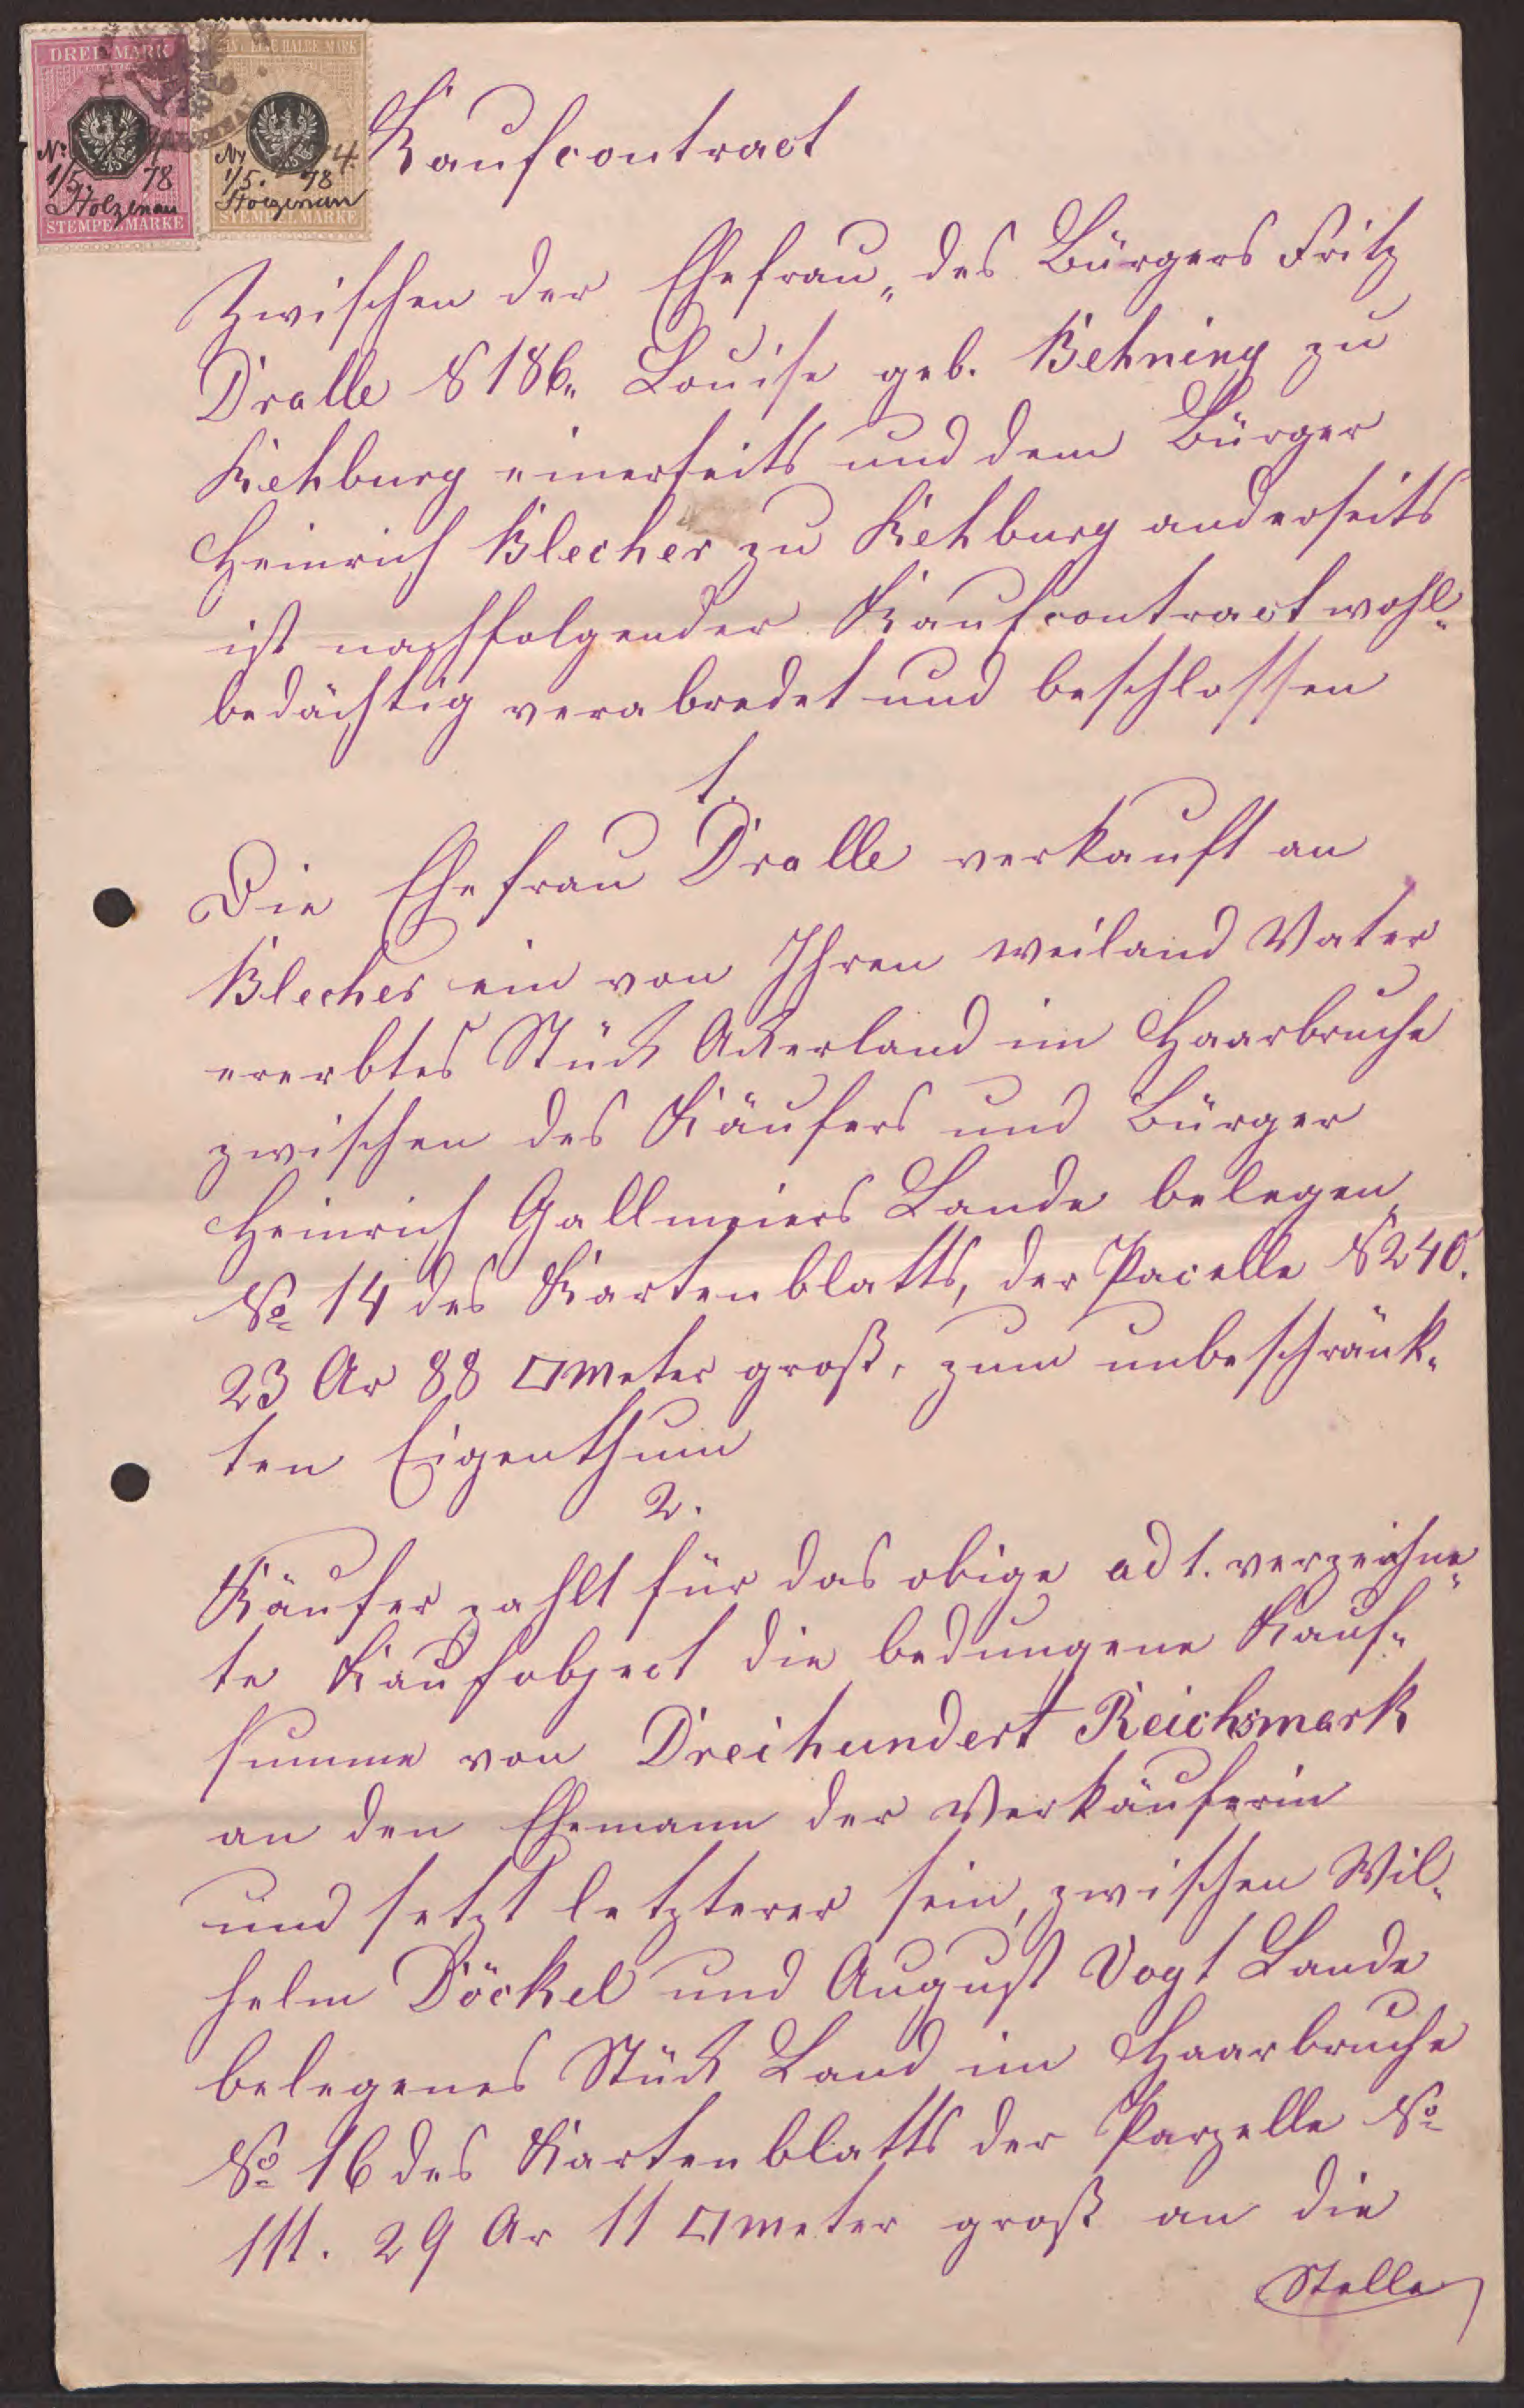 DREI MARK
EINE HALBE MARK
No
1/5. 78
Stolzenau
STEMPEL MARKE
No 4.
1/5. 78
Stolzenau
STEMPEL MARKE
Kaufcontract
Zwischen der Ehefrau „des Bürgers Fritz
Dralle № 186„ Louise geb. Behning zu
Rehburg einerseits und dem Bürger
Heinrich Blecher zu Rehburg anderseits
ist nachfolgender Kaufcontract wohl-
bedächtig verabredet und beschlossen
1.
Die Ehefrau Dralle verkauft an
Blecher ein von Ihren weiland Vater
ererbtes Stück Ackerland im Haarbruche
zwischen des Käufers und Bürger
Heinrich Gallmeiers Lande belegen,
No 14 des Kartenblatts, der Pacelle № 240.
23 Ar 88 □meter groß, zum unbeschränk-
ten Eigenthum
2.
Käufer zahlt für das obige ad 1. verzeichne-
te Kaufobject die bedungene Kauf-
summe von Dreihundert Reichsmark
an den Ehemann der Verkäuferin
und setzt letzterer sein, zwischen Wil-
helm Döckel und August Vogt Lande
belegenes Stück Land im Haarbruche
No 16 des Kartenblatts der Parzelle No
111. 29 Ar 11 □meter groß an die
Stelle